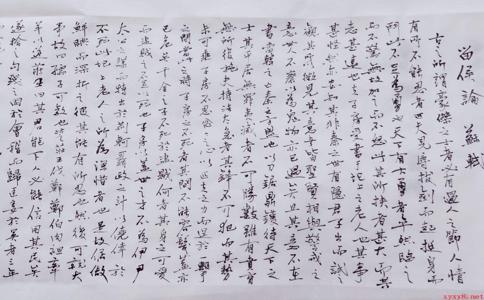 留侯論 蘇軾
古之所謂豪傑之士者必有過人之節人情
有所不能忍者匹夫見辱拔劍而起挺身而
鬥此不足為勇也天下有大勇者卒然臨之
而不驚無故加之而不怒此其所挾持者甚大而其
志甚遠也夫子房受書於圯上之老人也其事
甚怪然亦安知其非秦之世有隱君子出而試之
觀其所以微見其意者皆聖賢相與警戒之
義而世不察以為鬼物亦已過矣且其意不在
書當韓之亡秦之方盛也以刀鋸鼎鑊待天下之
士其平居無罪夷滅者不可勝數雖有賁育
無所復施夫持法太急者其鋒不可犯而其勢
未可乘子房不忍忿忿之心以匹夫之力而逞於一擊
之間當此之時子房之不死者其間不能容髮蓋亦
已危矣千金之子不死於盜賊何者其身之可愛
而盜賊之不足以死也子房以蓋世之才不為伊尹
太公之謀而特出於荊軻聶政之計以僥倖於
不死此圯上老人之所為深惜者也是故倨傲
鮮腆而深折之彼其能有所忍也然後可就大
事故曰孺子可教也楚莊王伐鄭鄭伯肉袒牽
羊以逆莊王曰其君能下人必能信用其民矣
遂捨之勾踐之困於會稽而歸臣妾於吳者三年
xyxy8t.net